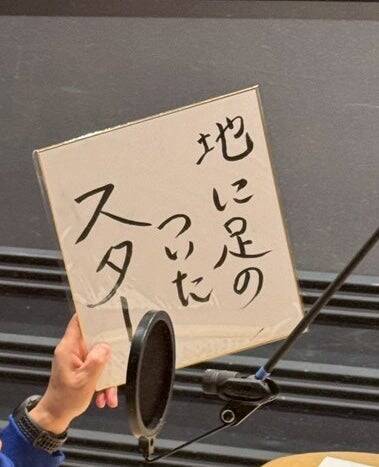 地に足の
ついた
スター